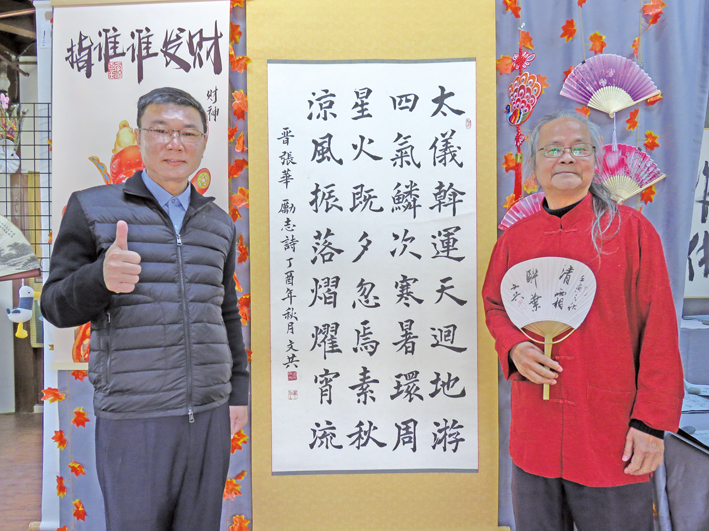 指谁谁发财
财神
太儀斡運天迴地游
四氣鱗次寒暑環周
星火既夕忽焉素秋
涼風振落熠燿宵流
晉張華 勵志詩 丁酉年秋月 文共